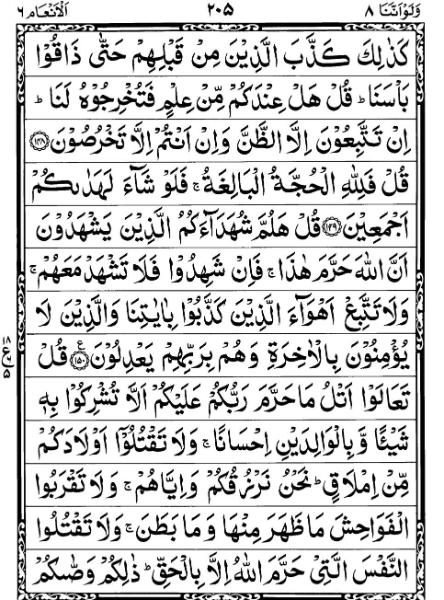 وَلَوْاَنَّنَا ٨ ٢٠٥ اَلْاَنْعَام ٦
كَذٰلِكَ كَذَّبَ الَّذِيْنَ مِنْ قَبْلِهِمْ حَتّٰى ذَاقُوْا
بَاْسَنَا ؕ قُلْ هَلْ عِنْدَكُمْ مِّنْ عِلْمٍ فَتُخْرِجُوْهُ لَنَا ؕ
اِنْ تَتَّبِعُوْنَ اِلَّا الظَّنَّ وَاِنْ اَنْتُمْ اِلَّا تَخْرُصُوْنَ ﴿١٤٨﴾
قُلْ فَلِلّٰهِ الْحُجَّةُ الْبَالِغَةُ ۚ فَلَوْ شَآءَ لَهَدٰىكُمْ
اَجْمَعِيْنَ ﴿١٤٩﴾ قُلْ هَلُمَّ شُهَدَآءَكُمُ الَّذِيْنَ يَشْهَدُوْنَ
اَنَّ اللّٰهَ حَرَّمَ هٰذَا ۚ فَاِنْ شَهِدُوْا فَلَا تَشْهَدْ مَعَهُمْ ۚ
وَلَا تَتَّبِعْ اَهْوَآءَ الَّذِيْنَ كَذَّبُوْا بِاٰيٰتِنَا وَالَّذِيْنَ لَا
يُؤْمِنُوْنَ بِالْاٰخِرَةِ وَهُمْ بِرَبِّهِمْ يَعْدِلُوْنَ ﴿١٥٠﴾ ع قُلْ
تَعَالَوْا اَتْلُ مَا حَرَّمَ رَبُّكُمْ عَلَيْكُمْ اَلَّا تُشْرِكُوْا بِهٖ
شَيْئًا وَّ بِالْوَالِدَيْنِ اِحْسَانًا ۚ وَلَا تَقْتُلُوْٓا اَوْلَادَكُمْ
مِّنْ اِمْلَاقٍ ؕ نَحْنُ نَرْزُقُكُمْ وَاِيَّاهُمْ ۚ وَلَا تَقْرَبُوا
الْفَوَاحِشَ مَا ظَهَرَ مِنْهَا وَمَا بَطَنَ ۚ وَلَا تَقْتُلُوا
النَّفْسَ الَّتِيْ حَرَّمَ اللّٰهُ اِلَّا بِالْحَقِّ ؕ ذٰلِكُمْ وَصّٰىكُمْ